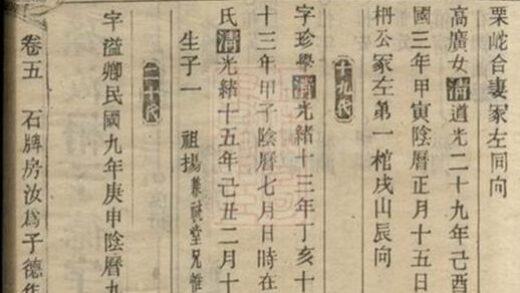 栗屹合妻冢左同向
高廣女清道光二十九年己酉
國三年甲寅陰曆正月十五日
枬公冢左第一棺戌山辰向
十九代
字珍學清光緒十三年丁亥十
十三年甲子陰曆七月日時在
氏清光緒十五年己丑二月十
生子一 祖揚兼祧堂兄維
二十代
字溢卿民國九年庚申陰曆九
卷五 石牌房汝爲子德